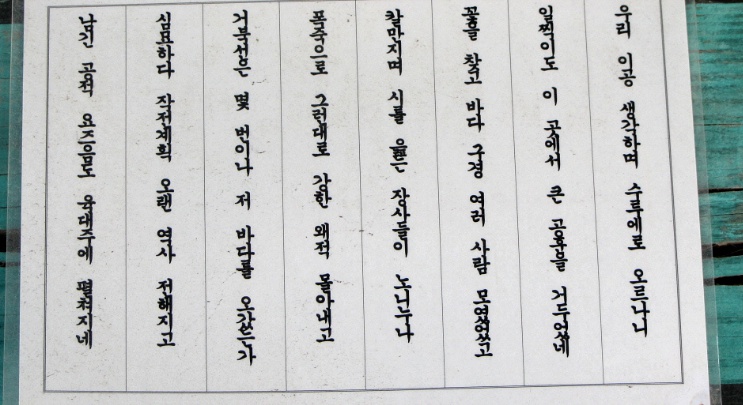 우리 이공 생각하며 수루에로 오르나니
일찍이도 이 곳에서 큰 공훈을 거두었네
공을 찾고 바다 구경 여러 사람 모였었고
칼 만지며 시를 읊든 장사들이 노니누나
폭죽으로 그런대로 강한 왜적 몰아내고
거북선은 몇 번이나 저 바다를 오갔는가
심묘하다 작전계획 오랜 역사 전해지고
남긴 공적 요즈음도 육대주에 떨쳐지네